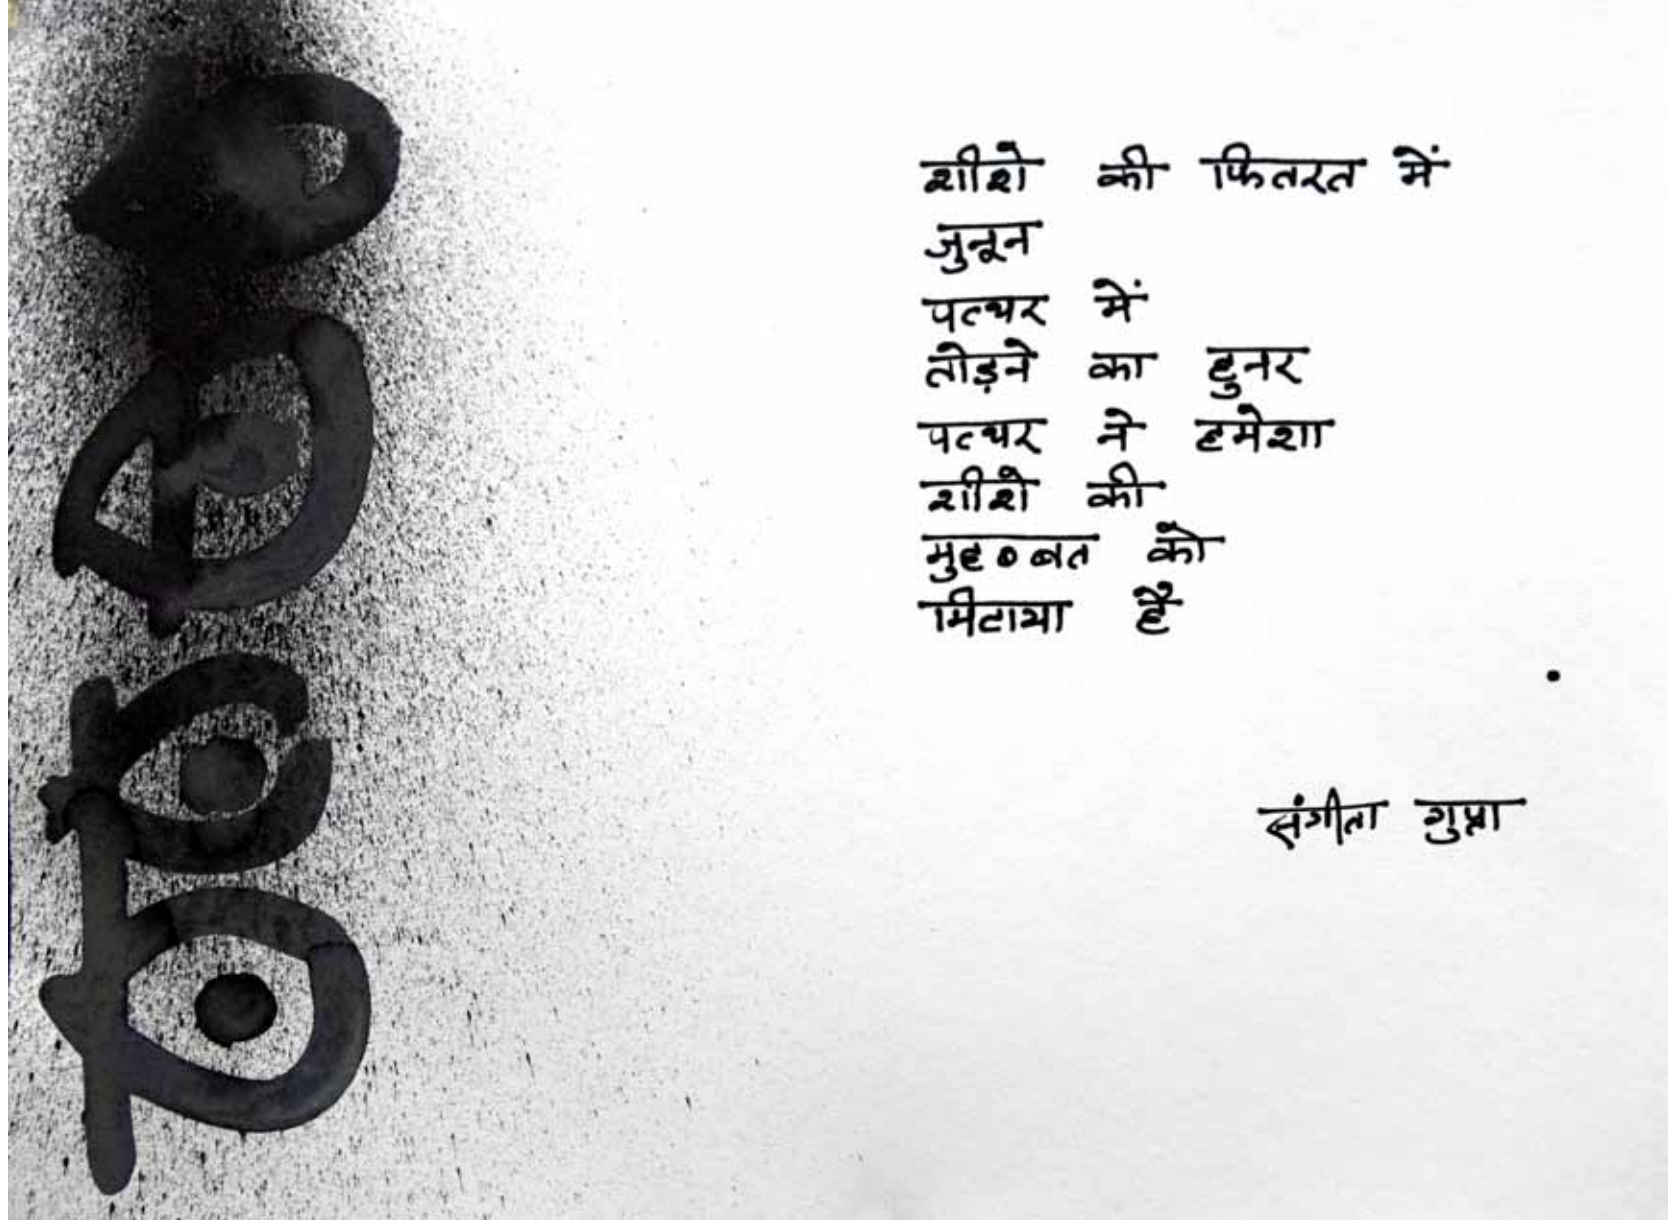 शीशे की फितरत में
जुनून
पत्थर में
तोड़ने का हुनर
पत्थर ने हमेशा
शीशे की
मुहब्बत को
मिटाया है
संगीता गुप्ता